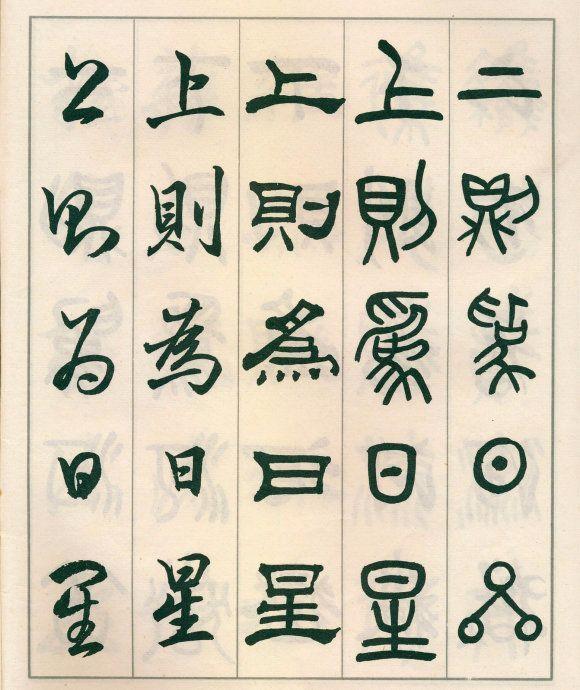 上則為日星
上則為日星
上則為日星
上則為日星
上則為日星